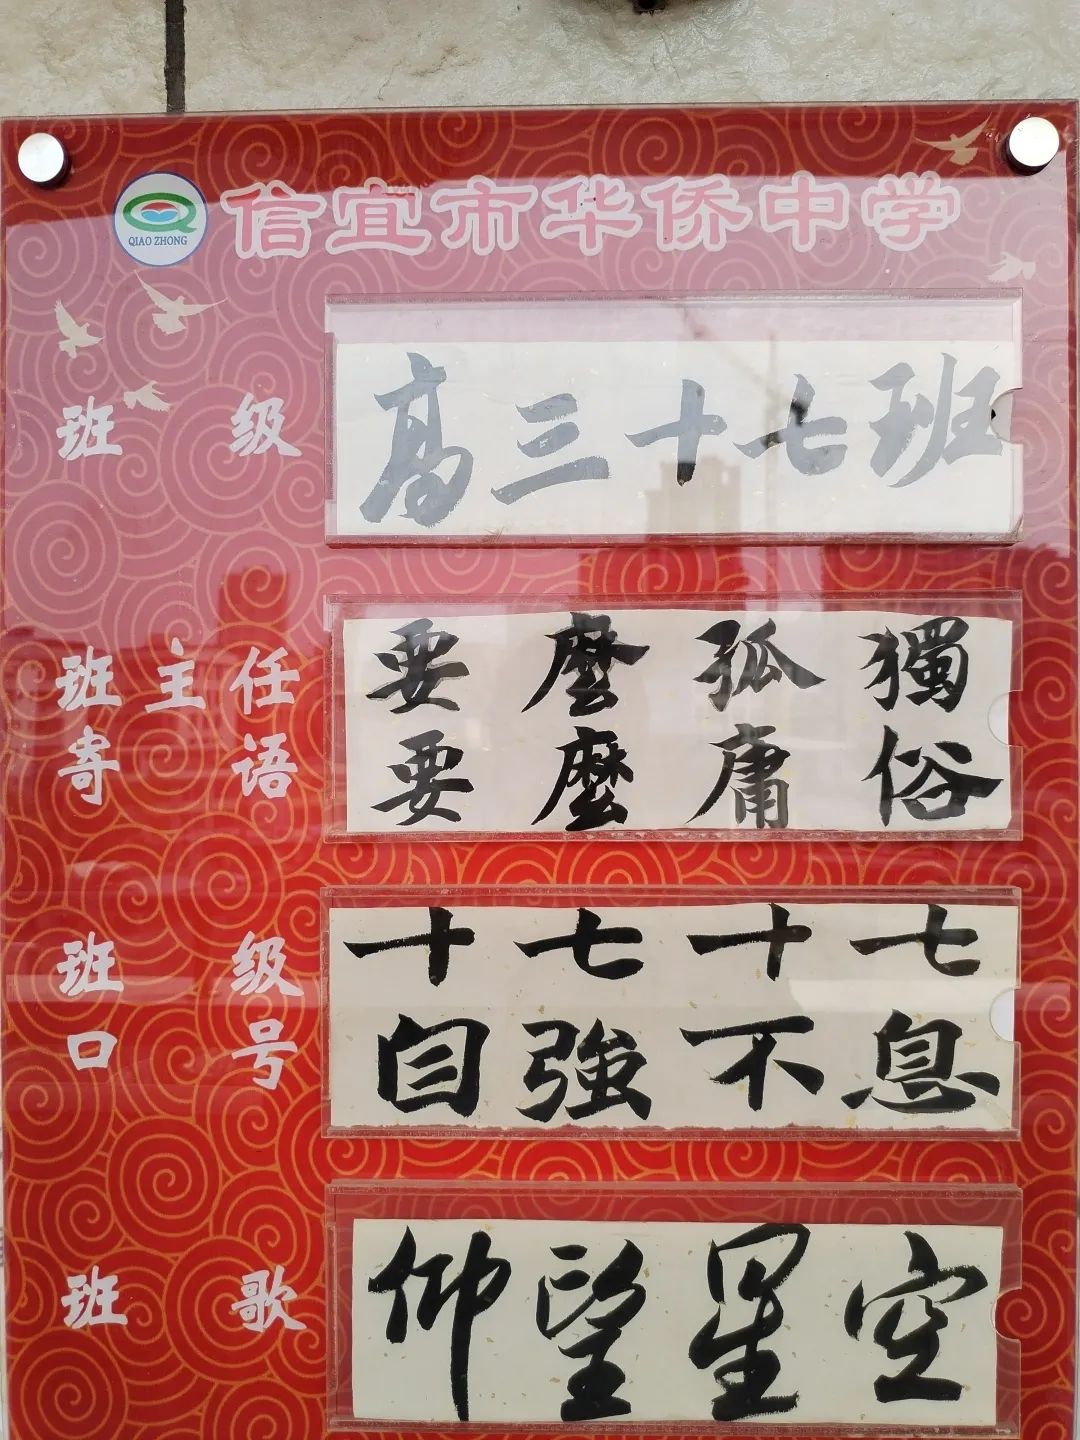 QIAO ZHONG
信宜市华侨中学
班级
高三十七班
班主任
寄语
要麼孤獨
要麼庸俗
班级
口号
十七十七
自強不息
班歌
仰望星空